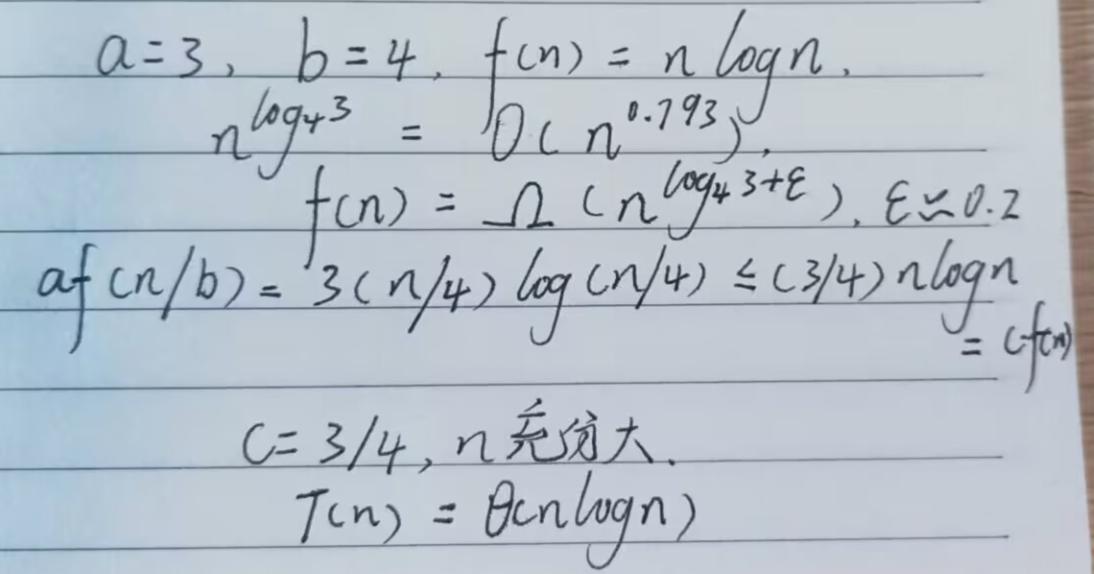 a=3, b=4, f(n) = n log n.
n^{log_4 3} = O(n^{0.793}),
f(n) = Ω(n^{log_4 3+ε}), ε≈0.2
af(n/b) = 3(n/4) log(n/4) ≤ (3/4) n log n
= cf(n)
C=3/4, n充分大.
T(n) = θ(n log n)